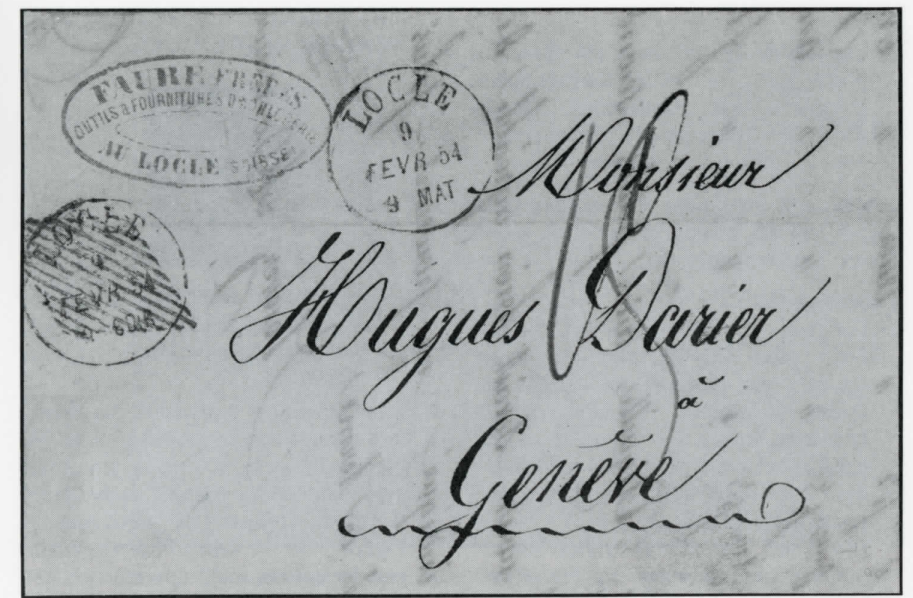 FAURE FRÈRES
OUTILS & FOURNITURES D'HORLOGERIE
AU LOCLE SUISSE
LOCLE
9
FEVR 54
9 MAT
LOCLE
9
FEVR 54
Monsieur
Hugues Darier
à
Genève